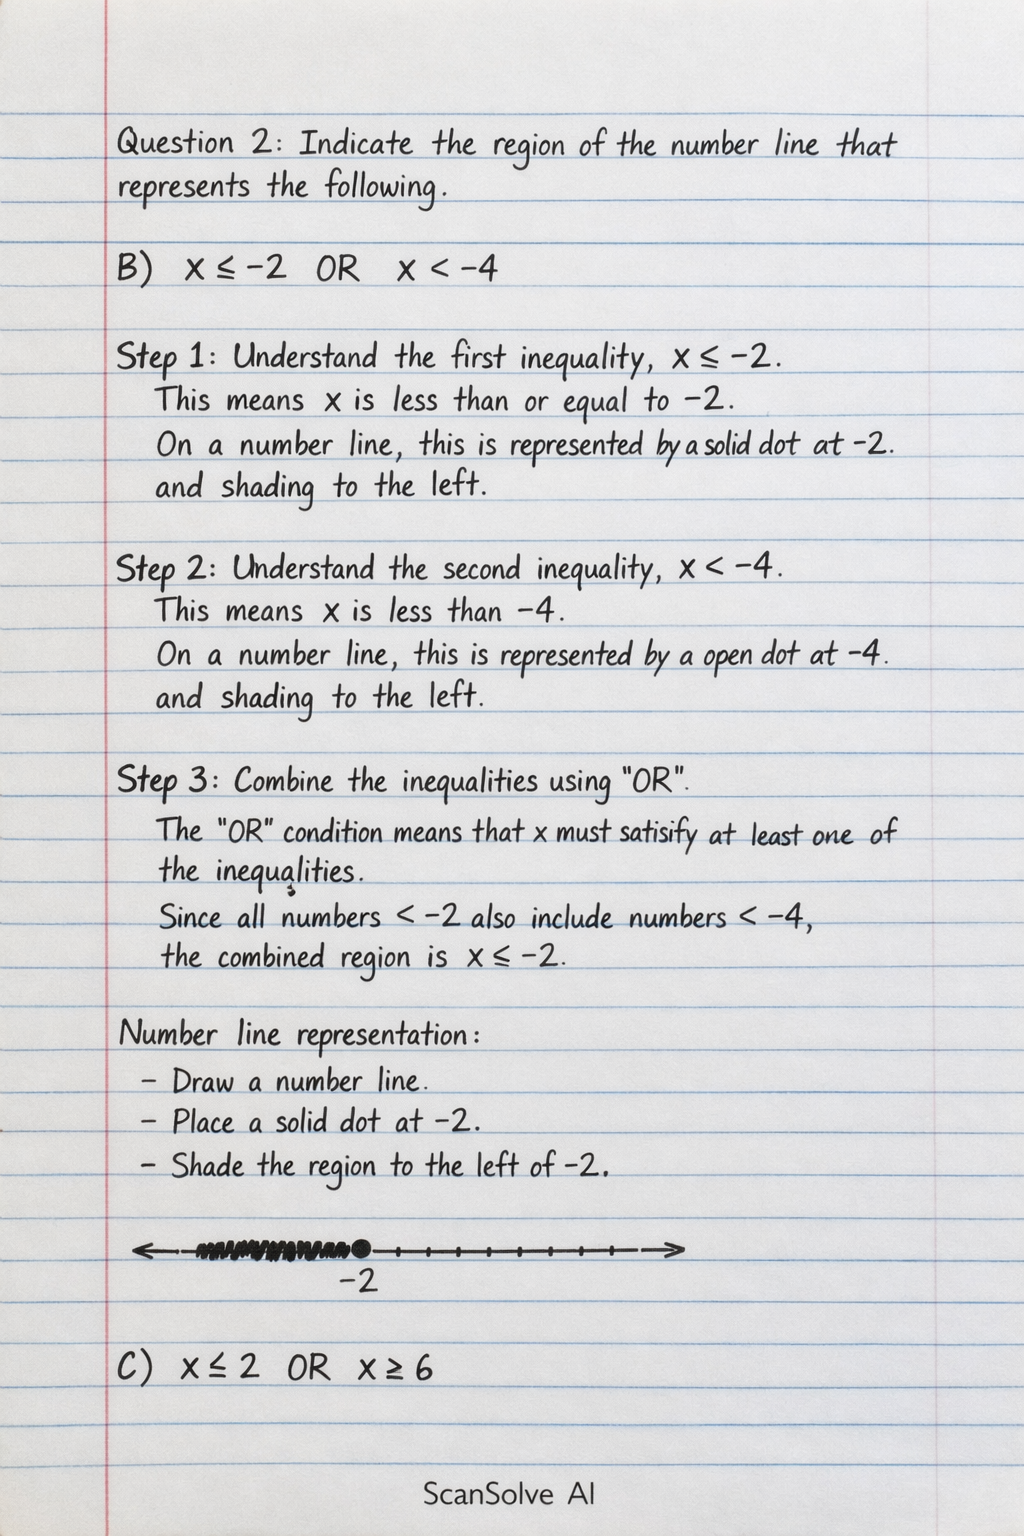 Question 2: Indicate the region of the number line that
represents the following.
B) x ≤ -2 OR x < -4
Step 1: Understand the first inequality, x ≤ -2.
This means x is less than or equal to -2.
On a number line, this is represented by a solid dot at -2.
and shading to the left.
Step 2: Understand the second inequality, x < -4.
This means x is less than -4.
On a number line, this is represented by a open dot at -4.
and shading to the left.
Step 3: Combine the inequalities using "OR".
The "OR" condition means that x must satisify at least one of
the inequalities.
Since all numbers < -2 also include numbers < -4,
the combined region is x ≤ -2.
Number line representation:
- Draw a number line.
- Place a solid dot at -2.
- Shade the region to the left of -2.
-2
C) x ≤ 2 OR x ≥ 6
ScanSolve AI